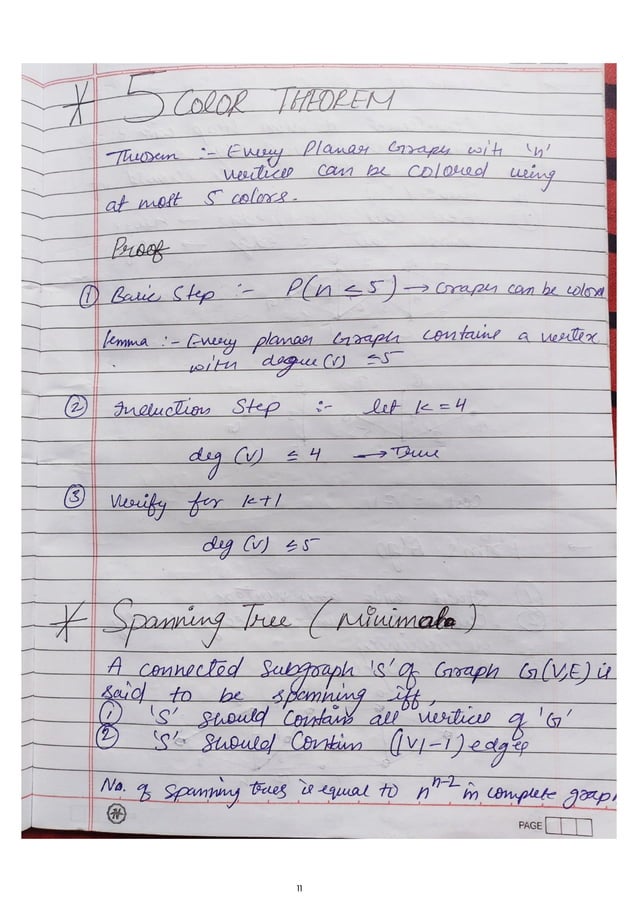 * 5 COLOR THEOREM
Theorem :- Every Planar Graph with 'n'
vertices can be colored using
at most 5 colors.
Proof
① Basic Step :- P(n ≤ 5) → Graph can be colored
Lemma :- Every planar Graph contains a vertex
with degree (v) ≤5
② Induction Step :- let K = 4
deg (v) ≤ 4 → True
③ Verify for k+1
deg (v) ≤5
* Spanning Tree ( Minimal )
A connected subgraph 'S' of Graph G(V,E) is
said to be spanning iff,
① 'S' should Contain all vertices of 'G'
② 'S' should Contain (|V|-1) edges
No. of spanning trees is equal to n^n-2 in complete graph
PAGE
11